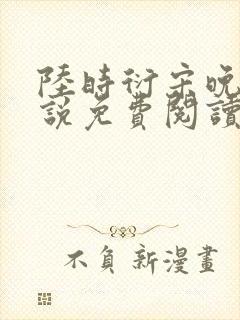 陸時衍宋晚
說免費閱讀
不負新漫畫